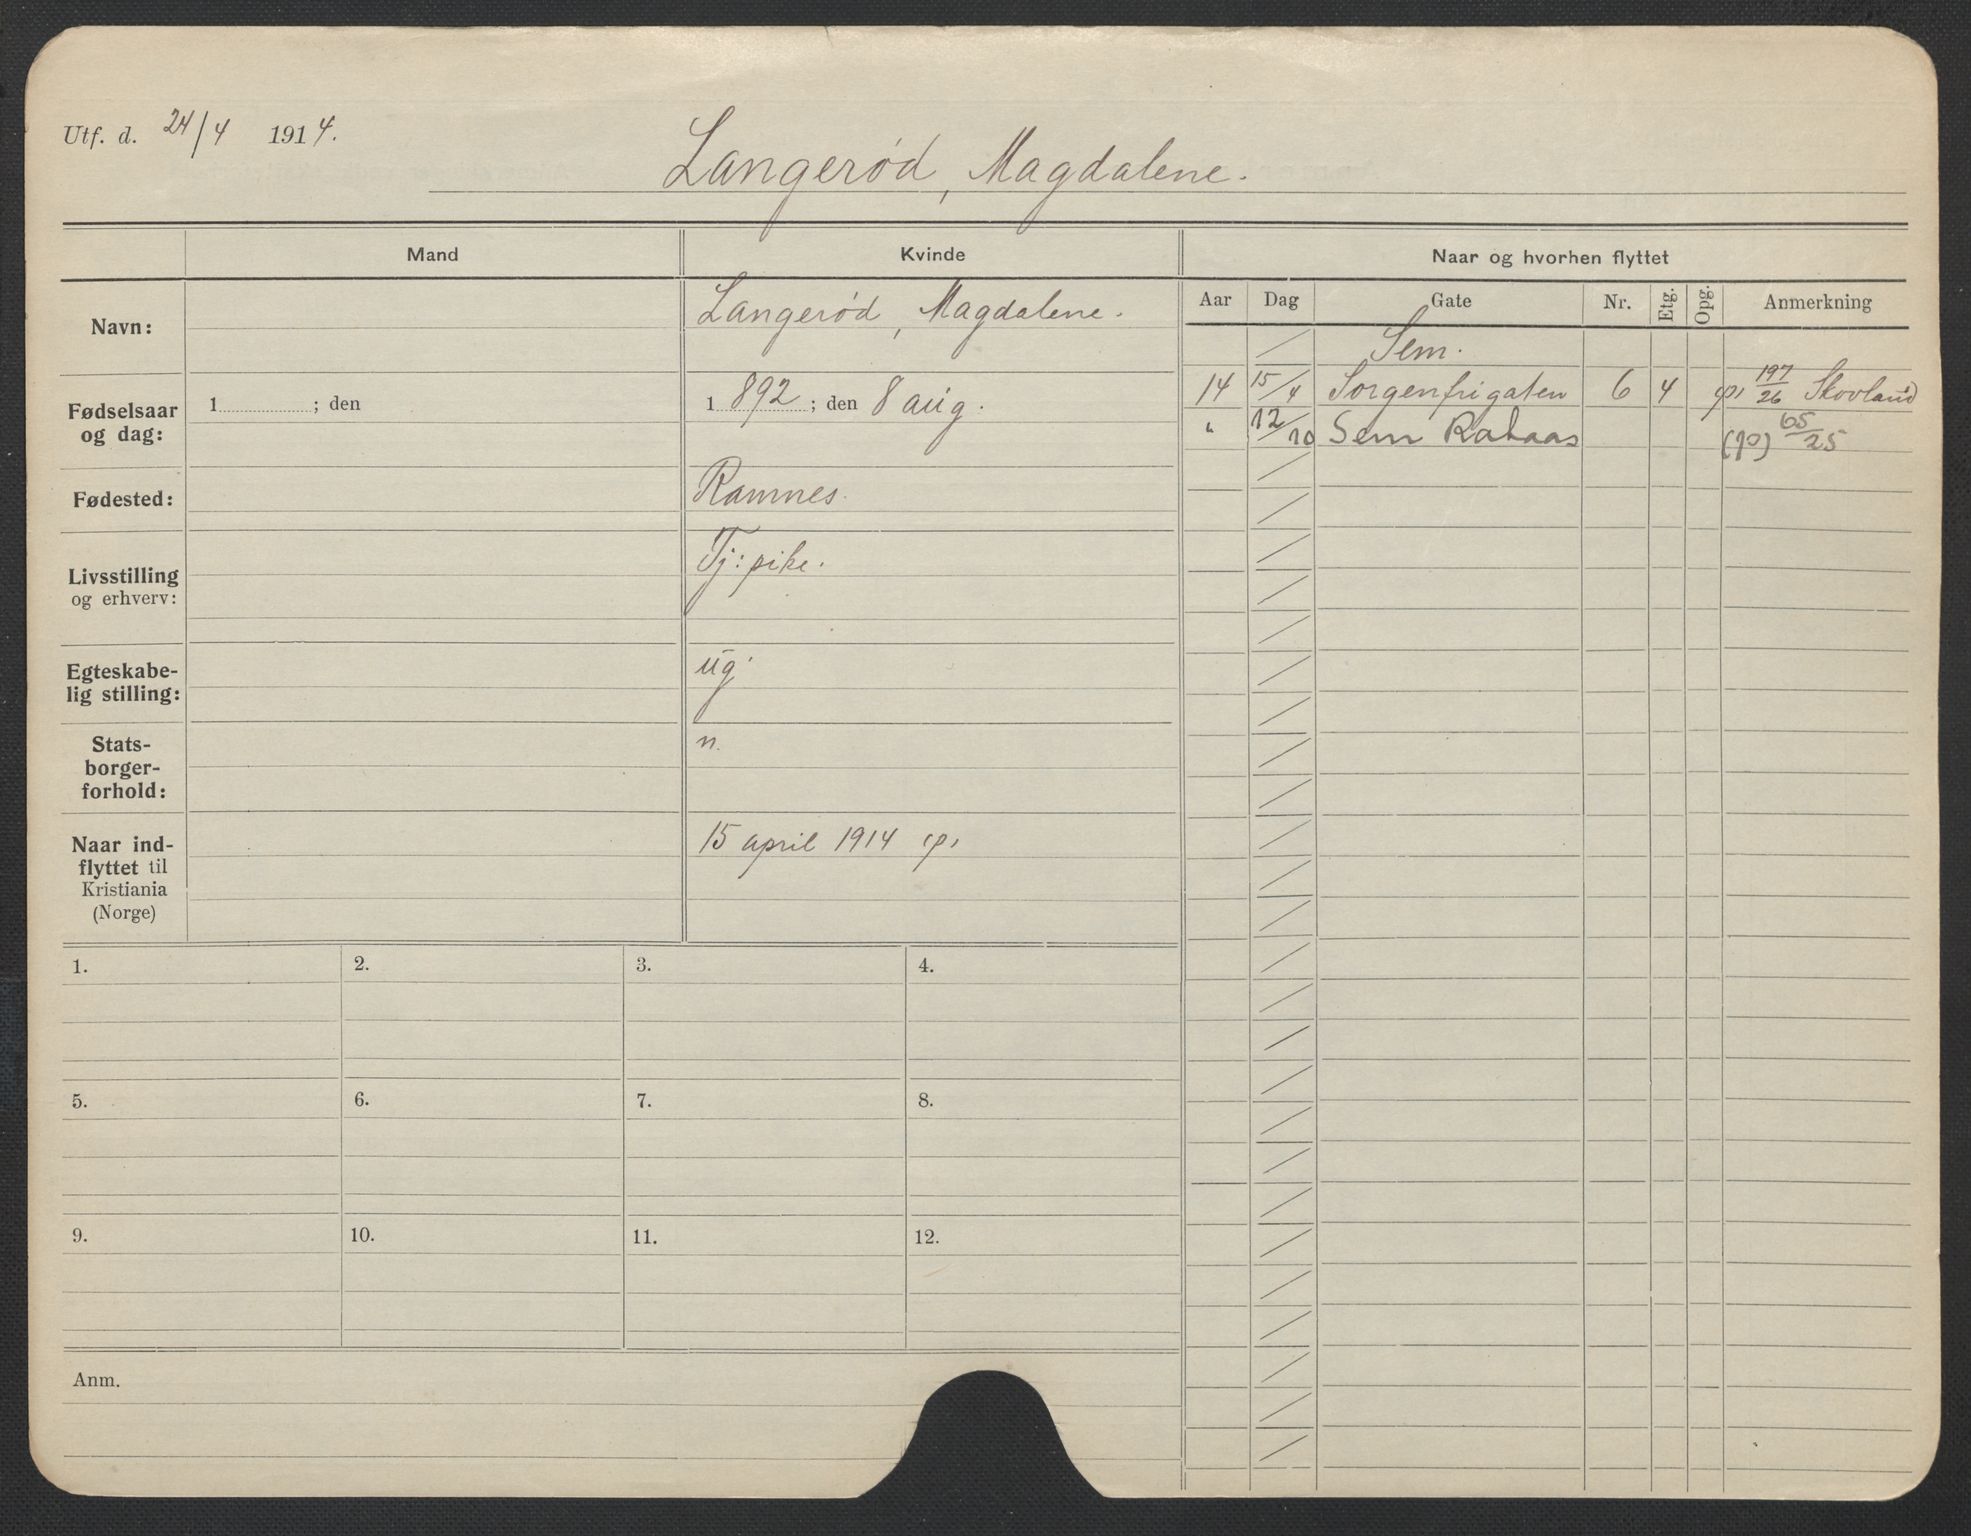 Utf. d. 24/4 1914.
Langerød, Magdalene.
Mand
Kvinde
Naar og hvorhen flyttet
Navn:
Langerød, Magdalene.
Fødselsaar og dag:
1 ; den
1 892 ; den 8 aug.
Fødested:
Ramnes.
Livsstilling og erhverv:
Tj: pike.
Egteskabe-
lig stilling:
ug.
Stats-
borger-
forhold:
n.
Naar ind-
flyttet til
Kristiania
(Norge)
15 april 1914 (p)
Aar Dag Gate Nr. Etg. Opg. Anmerkning
/ Sem.
14 15/4 Sorgenfrigaten 6 4 (p) 197/26 Skovland
" 12/10 Sem Rakaas (p) 65/25
1. 2. 3. 4.
5. 6. 7. 8.
9. 10. 11. 12.
Anm.